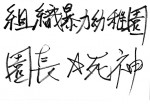 組織暴力幼稚園
園長は死神